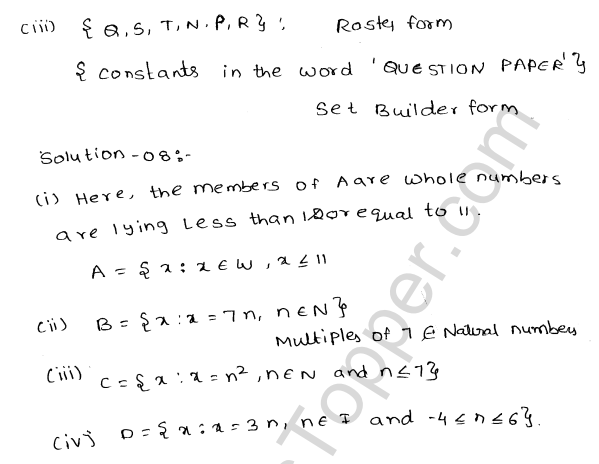 (iii) { Q, S, T, N, P, R }; Roster form
{ constants in the word 'QUESTION PAPER' }
Set Builder form
Solution - 08 :-
(i) Here, the members of A are whole numbers
are lying Less than or equal to 11.
A = { x : x ∈ W , x ≤ 11
(ii) B = { x : x = 7n, n ∈ N }
Multiples of 7 ∈ Natural numbers
(iii) C = { x : x = n², n ∈ N and n ≤ 7 }
(iv) D = { x : x = 3n, n ∈ I and -4 ≤ n ≤ 6 }.
Topper.com